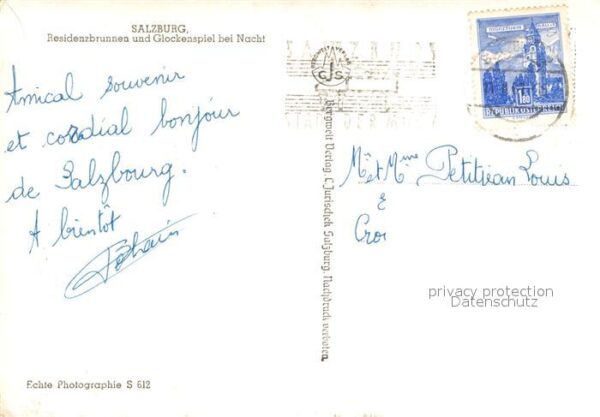 SALZBURG,
Residenzbrunnen und Glockenspiel bei Nacht
Amical souvenir
et cordial bonjour
de Salzbourg.
A bientôt
Echte Photographie S 612
Bergwelt Verlag, C. Jurischek, Salzburg. Nachdruck verboten.
CJS
1.80
REPUBLIK ÖSTERREICH
Mr et Mme Petitjean Louis
&
Croi
privacy protection
Datenschutz